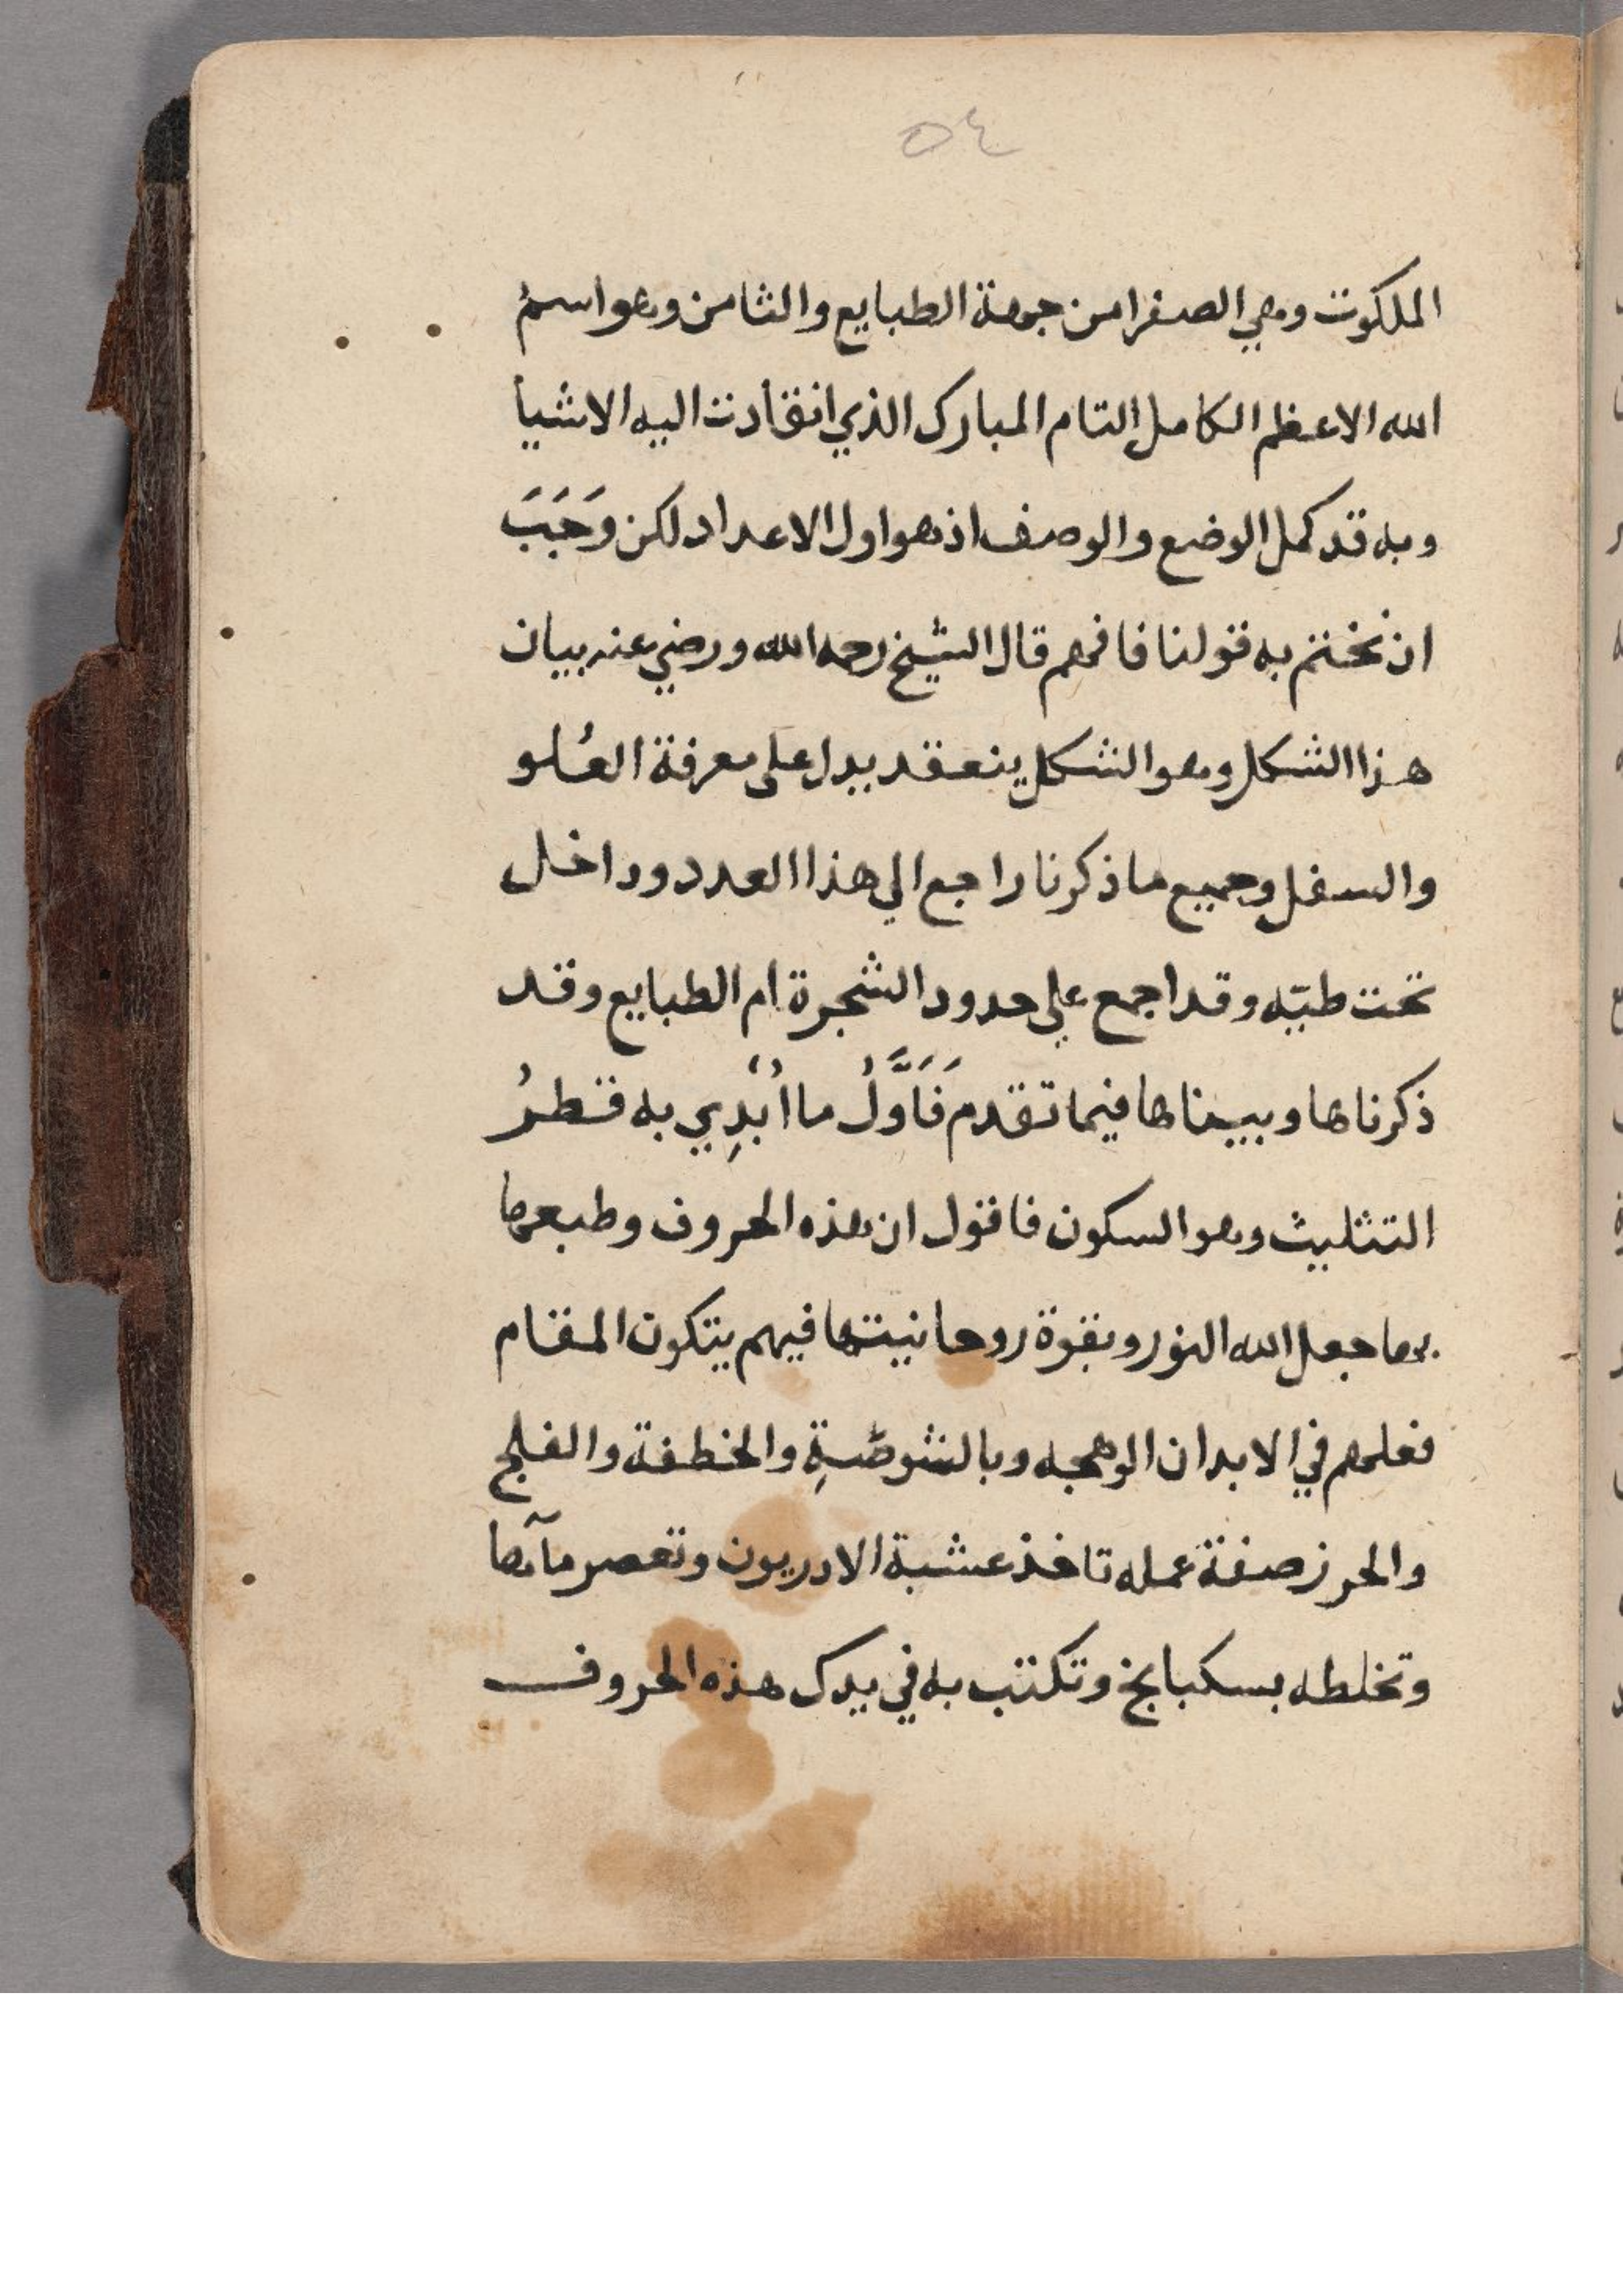 ٥٤
الملكوت وهي الصفرا من جهة الطبايع والثامن وهو اسم
الله الاعظم الكامل التام المبارك الذي انقادت اليه الاشيأ
وبه قد كمل الوضع والوصف اذ هو اول الاعداد لكن وَجَبَ
ان نختم به قولنا فافهم قال الشيخ رحمه الله ورضي عنه بيان
هذا الشكل وهو الشكل ينعقد يدل على معرفة العُلو
والسفل وجميع ما ذكرنا راجع الي هذا العدد وداخل
تحت طيّه وقد اجمع علي حدود الشجرة ام الطبايع وقد
ذكرناها وبيناها فيما تقدم فَاَوَّلُ ما اُبْدِي به قطرُ
التثليث وهو السكون فاقول ان هذه الحروف وطبعها
بها جعل الله النور وبقوة روحانيتها فيهم يتكون المقام
فعلهم في الابدان الوهجه وبالشوصَّةِ والخطفة والفلج
والحرز صفة عمله تاخذ عشبة الادريون وتعصر مآها
وتخلطه بسكبابخ وتكتب به في يدك هذه الحروف